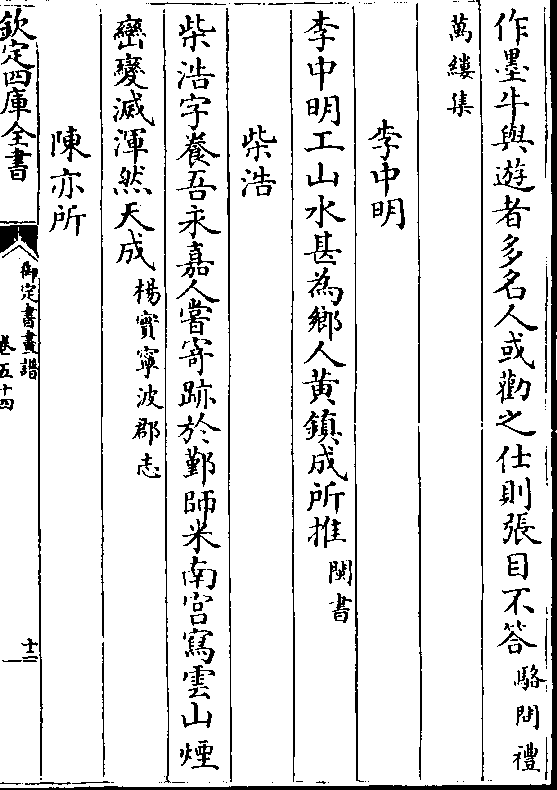 作墨牛與遊者多名人或勸之仕則張目不答駱問禮
萬縷集
李中明
李中明工山水甚為鄉人黄鎮成所推閩書
柴浩
柴浩字養吾永嘉人嘗寄跡於鄞師米南宫寫雲山煙
巒變滅渾然天成楊寔寧波郡志
陳亦所
欽定四庫全書
御定書畫譜
卷五十四
十二